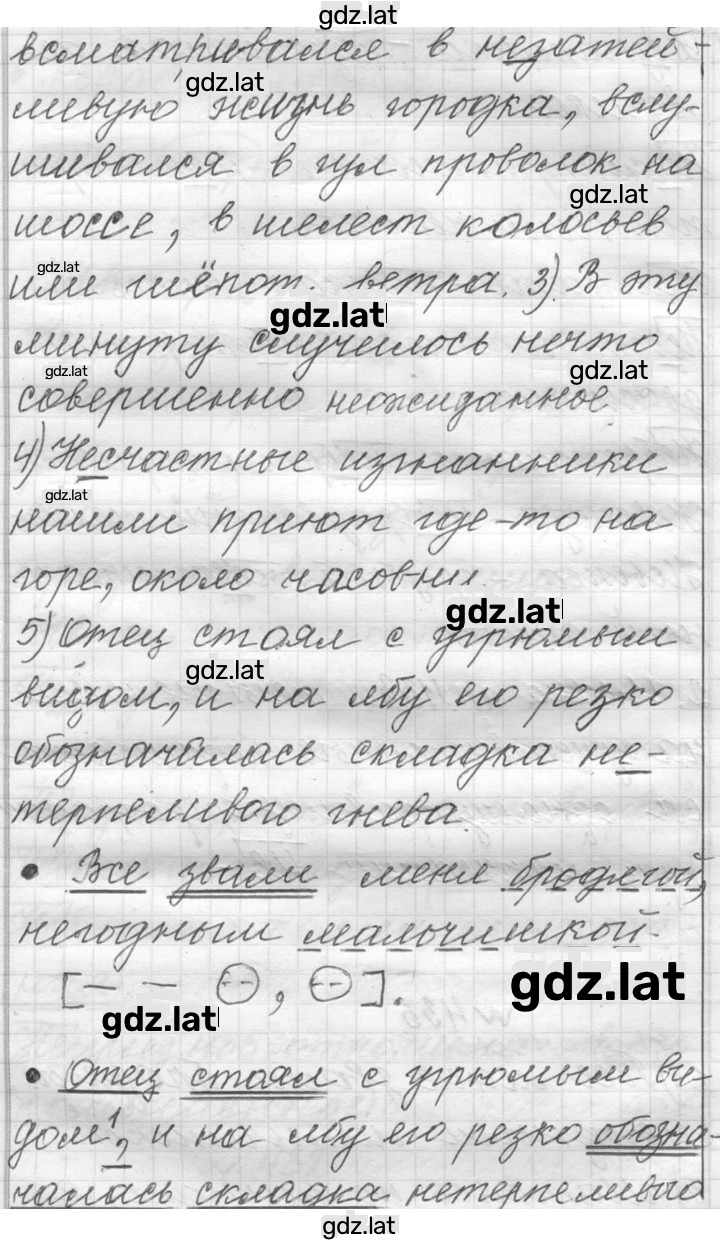 gdz.lat
всматривался в незатей-
gdz.lat
ливую жизнь городка, вслу-
шивался в гул проволок на
gdz.lat
шоссе, в шелест колосьев
gdz.lat
или шёпот ветра. 3) В эту
gdz.lat
минуту случилось нечто
gdz.lat gdz.lat
совершенно неожиданное
4) Несчастные изгнанники
gdz.lat
нашли приют где-то на
горе, около часовни.
gdz.lat
5) Отец стоял с угрюмым
gdz.lat
видом, и на лбу его резко
обозначалась складка не-
терпеливого гнева.
• Все звали меня бродягой,
негодным мальчишкой.
gdz.lat
[— — , ].
gdz.lat
• Отец стоял с угрюмым ви-
дом¹, и на лбу его резко обозна-
чалась складка нетерпеливого
gdz.lat